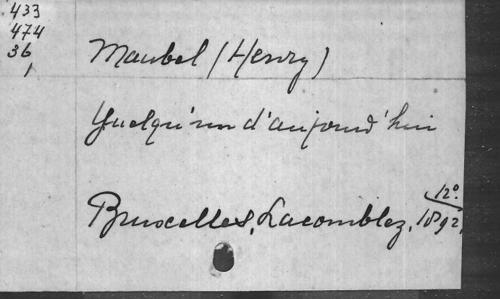 433
474
36
1
Maubel (Henry)
Quelqu'un d'aujourd'hui
12º
Bruxelles, Lacomblez, 1892,